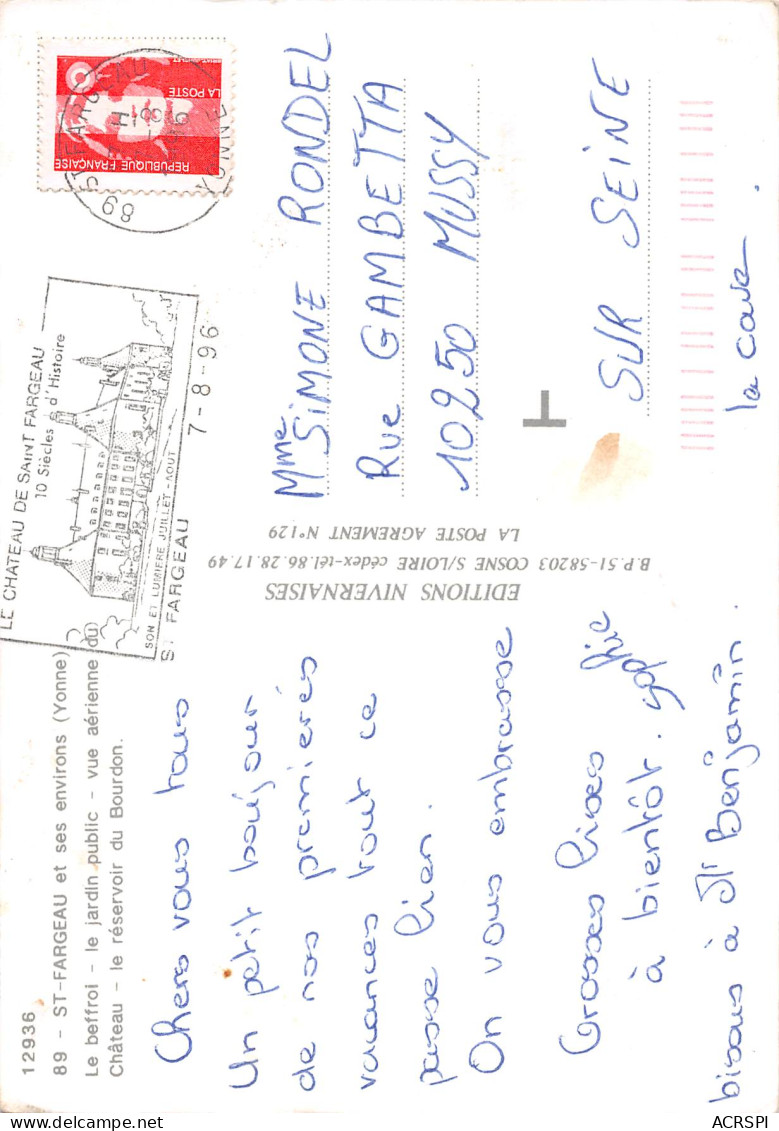 12936
89 - ST-FARGEAU et ses environs (Yonne)
Le beffroi - le jardin public - vue aérienne du
Château - le réservoir du Bourdon.
Chers vous tous
Un petit boujour
de nos premières
vacances tout ce
passe bien.
On vous embrasse
Grosses bises
à bientôt. Sophie
bisous à Benjamin.
EDITIONS NIVERNAISES
B.P.51-58203 COSNE S/LOIRE cédex-tél.86.28.17.49
LA POSTE AGREMENT N°129
LE CHATEAU DE SAINT FARGEAU
10 Siècles d'Histoire
SON ET LUMIERE JUILLET-AOUT
ST FARGEAU 7-8-96
89 ST FARGEAU YONNE
REPUBLIQUE FRANÇAISE
LA POSTE
Mme SIMONE RONDEL
Rue GAMBETTA
10250 MUSSY
SUR SEINE
la cave
ACRSPI